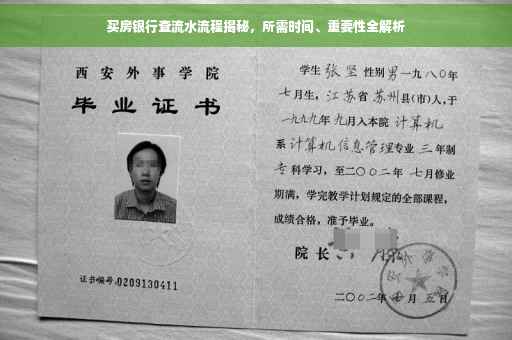 买房银行查流水流程揭秘，所需时间、重要性全解析
西安外事学院
毕业证书
证书编号:0209130411
学生 张坚 性别 男 一九八〇年
七月生，江苏省 苏州县(市)人,于
一九九九年 九月入本院 计算机
系 计算机信息管理专业 三 年制
专科学习，至二〇〇二年 七月修业
期满，学完教学计划规定的全部课程，
成绩合格，准予毕业。
院长
二〇〇二年 七月 五日